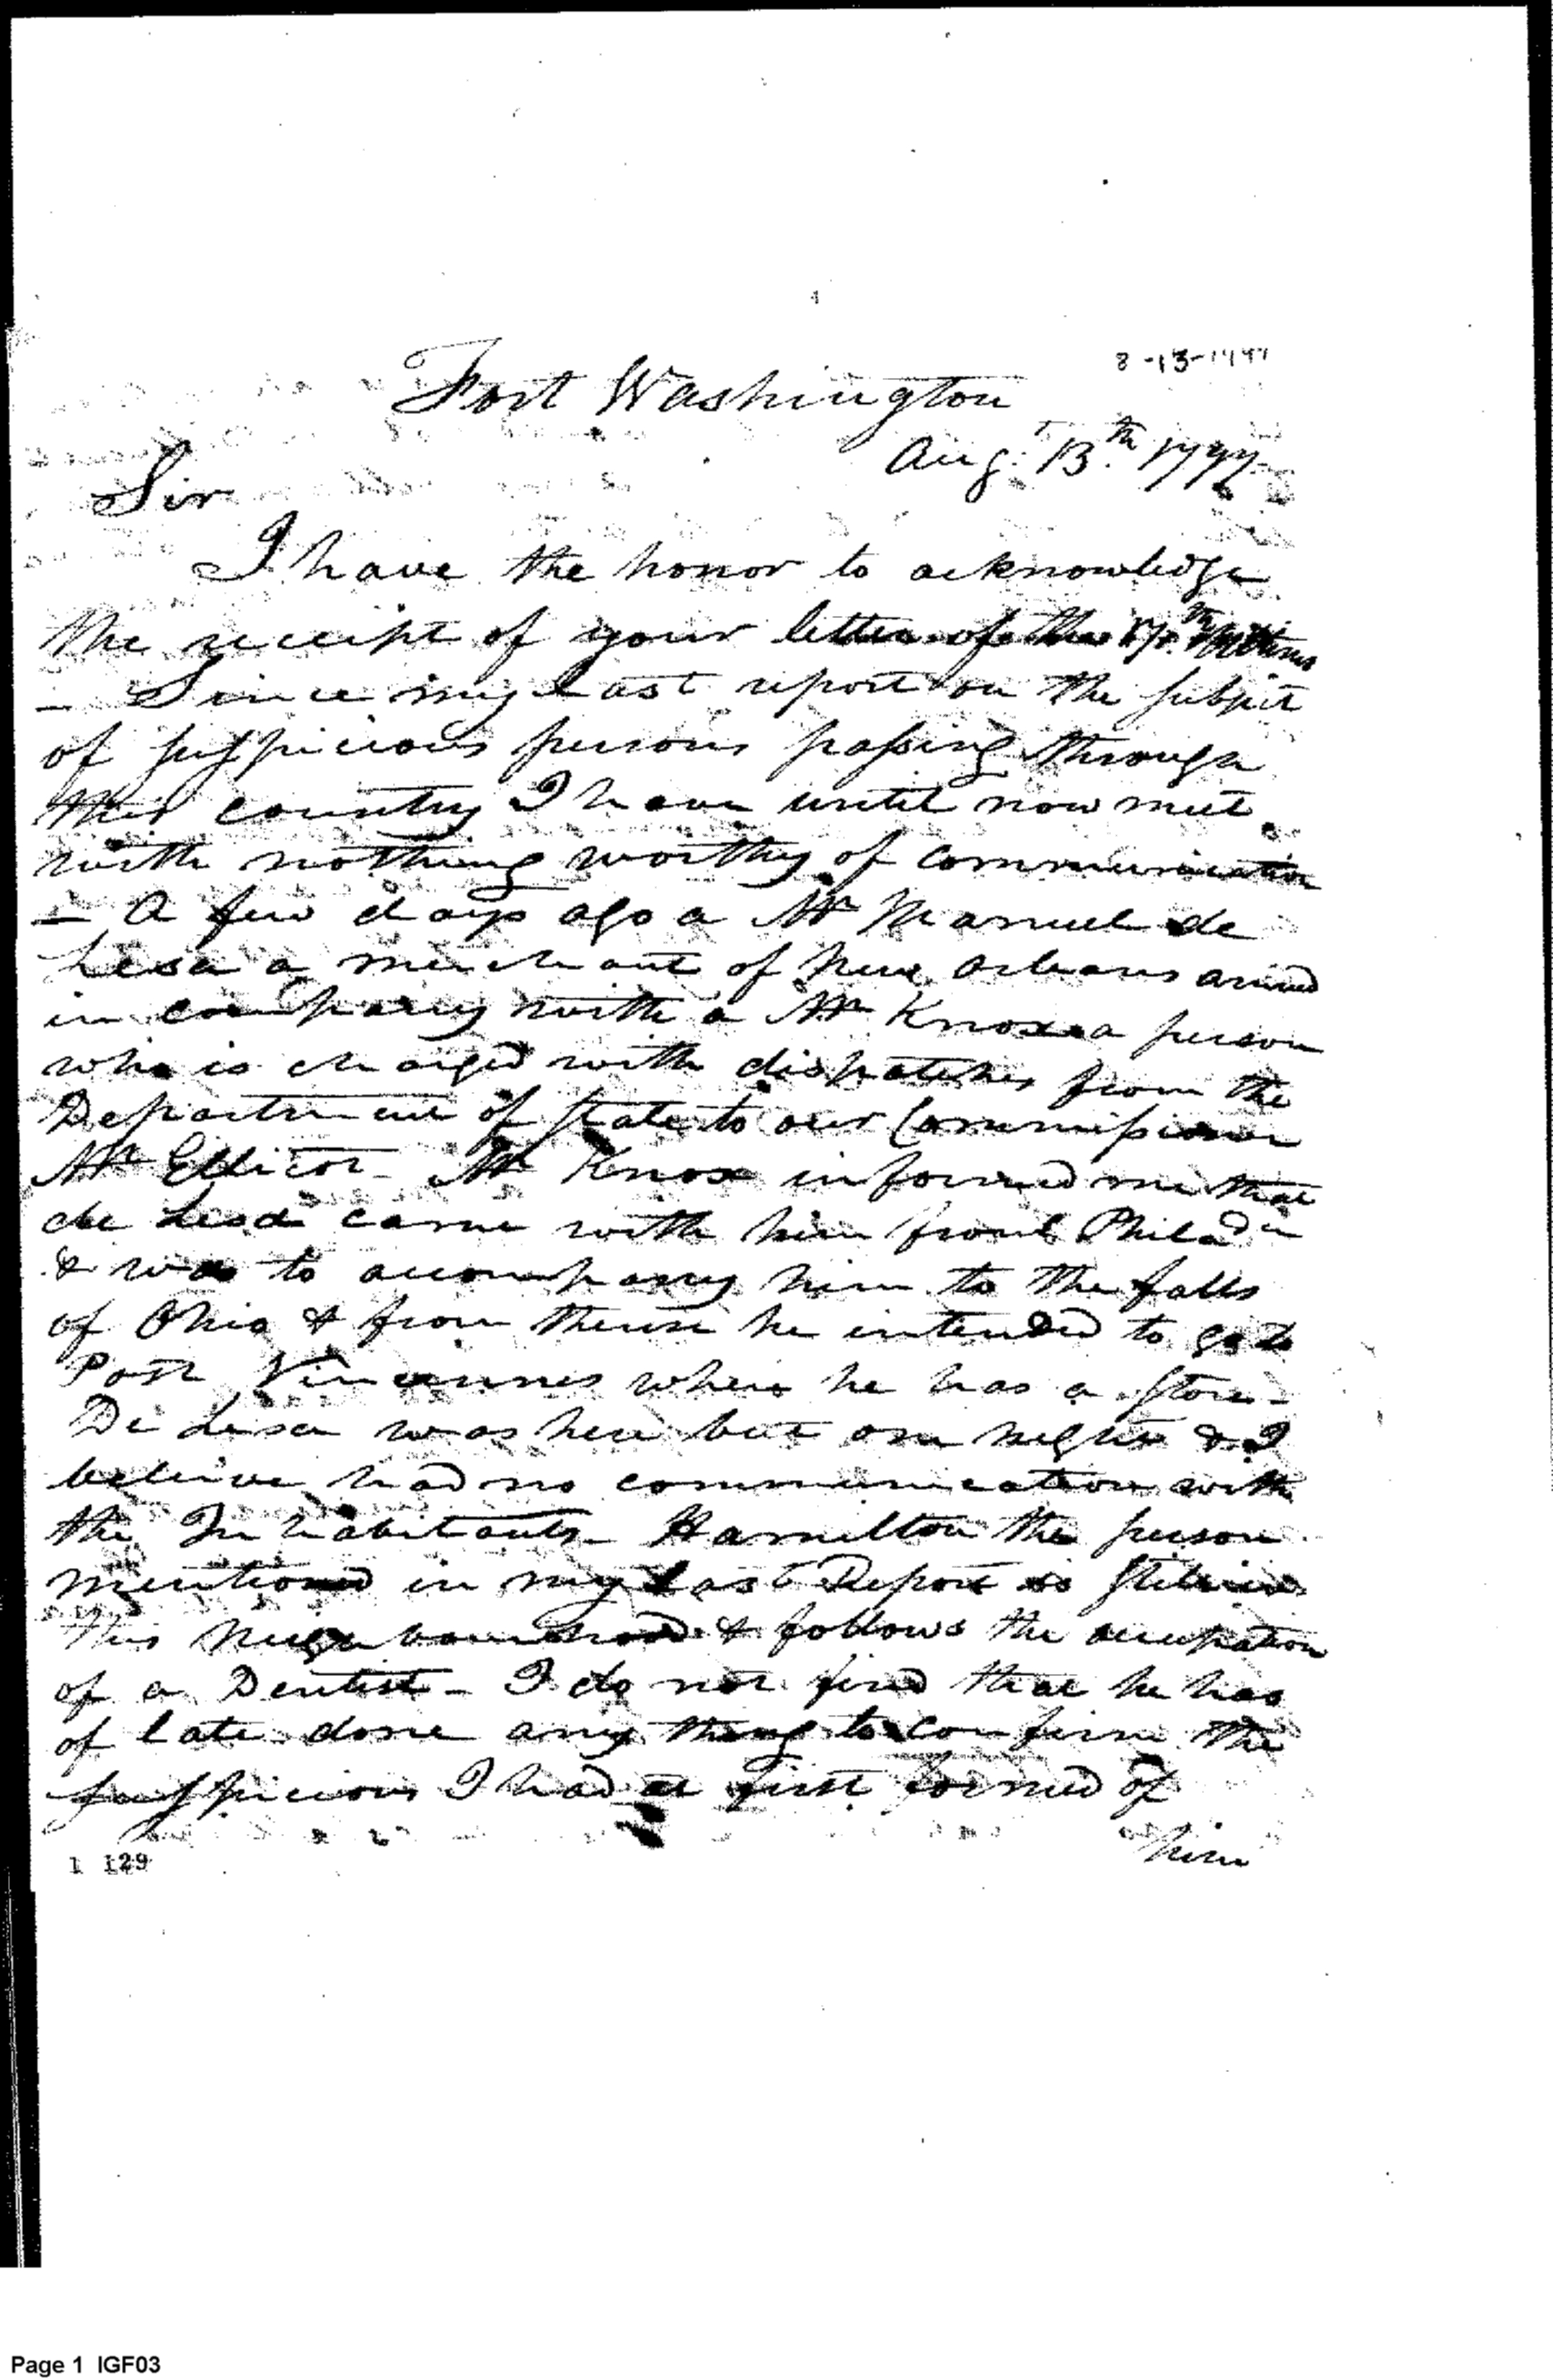 8-13-1797
Fort Washington
Aug.t 13.th 1797
Sir
I have the honor to acknowledge
the receipt of your letter of the
— Since my last report on the subject
of suspicious persons passing through
this country I have until now met
with nothing worthy of communication
— A few days ago a Mr Manuel de
Lesa a merchant of New Orleans arrived
in company with a Mr Knox a person
who is charged with dispatches from the
Department of State to our Commissioner
Mr Ellicot — Mr Knox informed me that
de Lesa came with him from Philada
& was to accompany him to the falls
of Ohio & from thence he intended to go to
Post Vincennes where he has a store —
De Lesa was here but one night & I
believe had no communication with
the Inhabitants — Hamilton the person
mentioned in my last Report is still in
this Neighbourhood & follows the occupation
of a Dentist — I do not find that he has
of late done any thing to confirm the
suspicions I had at first formed of
him
1 129
Page 1 IGF03